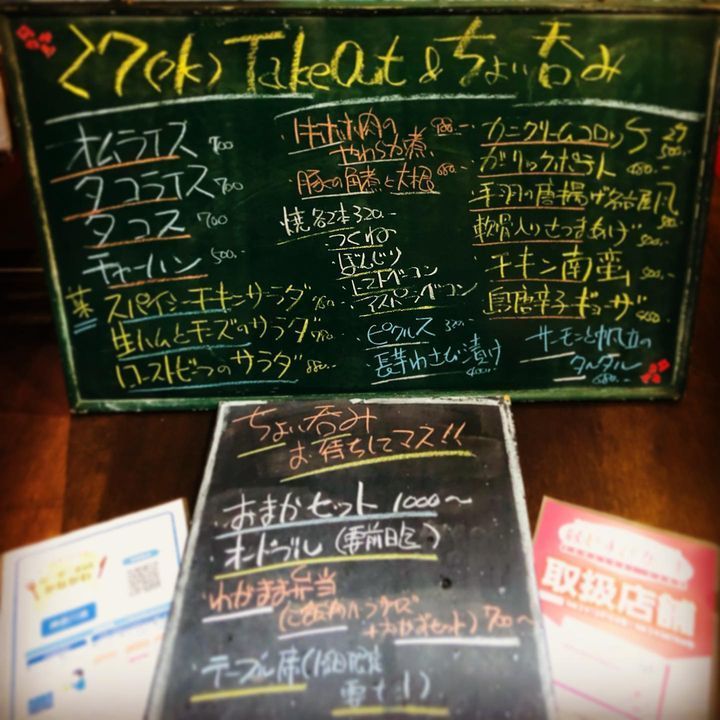 27(水) TakeOut & ちょい呑み
オムライス 700
タコライス 700
タコス 700
チャーハン 500.-
スパイシーチキンサラダ
生ハムとチーズのサラダ
ローストビーフのサラダ 880.-
ホホ肉の
やわらか煮
豚の角煮と大根 680.-
焼各2本320.-
つくね
ぼんじり
トマトベーコン
アスパラベーコン
ピクルス 320.-
長芋わさび漬け 400.-
カニクリームコロッケ 2ヶ 500.-
ガーリックポテト 480.-
手羽の唐揚げ名古屋風
軟骨入りさつまあげ 500.-
チキン南蛮
島唐辛子ギョーザ
サーモンと帆立の
タルタル 680.-
ちょい呑み
お待ちしてマス!!
おまかセット 1000～
オードブル (要前日迄)
わがまま弁当
700～
テーブル席
取扱店舗